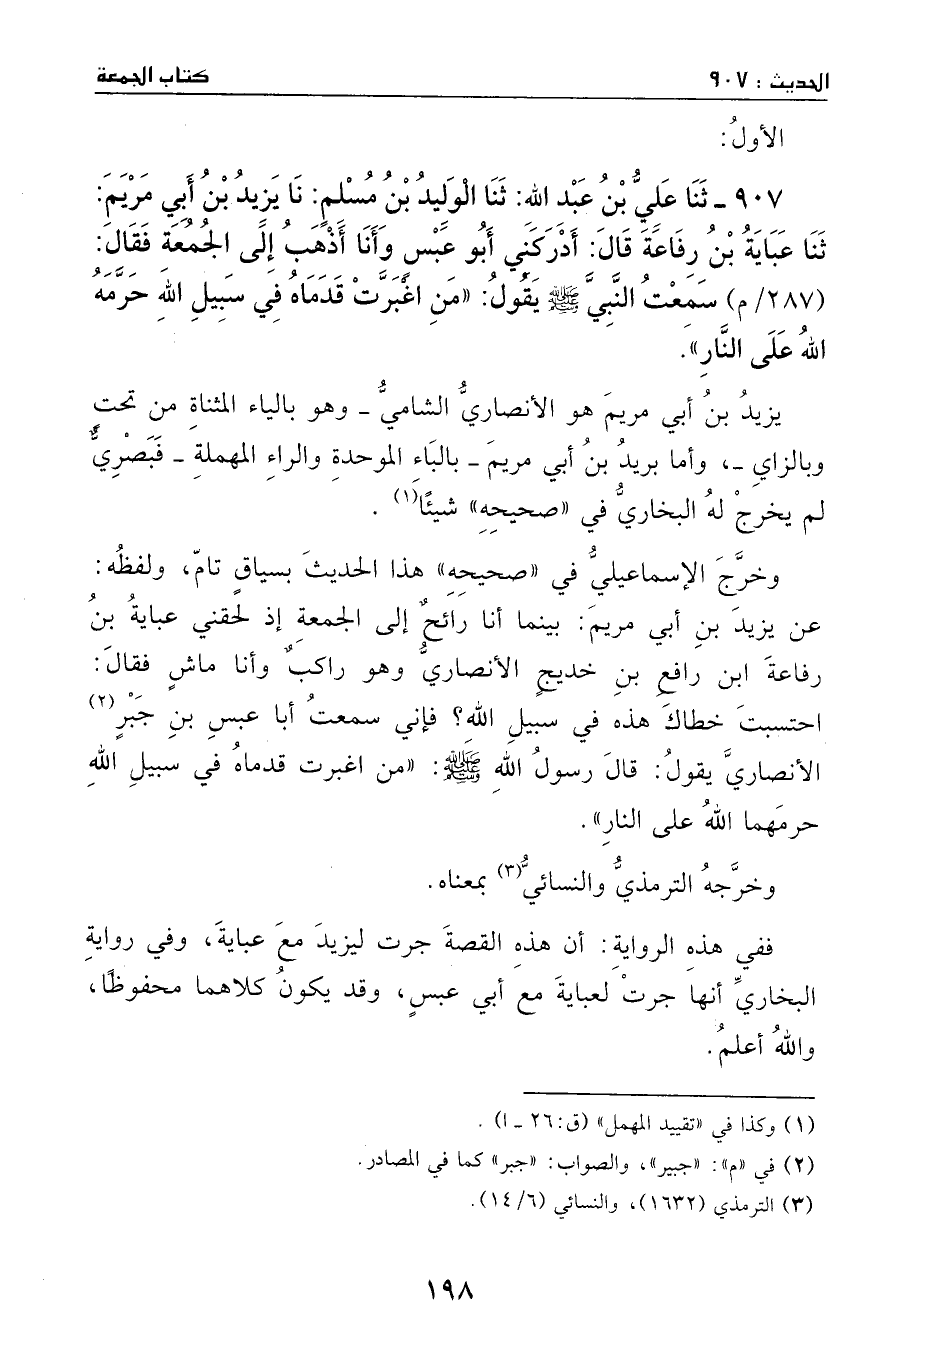 الحديث : ٩٠٧ كتاب الجمعة
الأولُ:
٩٠٧ ـ ثَنَا عَلَيُّ بْنُ عَبْد الله: ثَنَا الْوَلِيدُ بْنُ مُسْلِمٍ: نَا يَزِيدُ بْنُ أَبِي مَرْيَمَ:
ثَنَا عَبَايَةُ بْنُ رِفَاعَةَ قَالَ: أَدْرَكَنِي أَبُو عَبْسٍ وَأَنَا أَذْهَبُ إِلَى الْجُمُعَةِ فَقَالَ:
(٢٨٧/ م) سَمِعْتُ النَّبِيَّ ﷺ يَقُولُ: «مَنِ اغْبَرَّتْ قَدَمَاهُ فِي سَبِيلِ اللهِ حَرَّمَهُ
اللهُ عَلَى النَّارِ».
يزيدُ بنُ أبي مريمَ هو الأنصاريُّ الشاميُّ ـ وهو بالياء المثناةِ من تحت
وبالزاي ـ، وأما بريدُ بنُ أبي مريمَ ـ بالبَاءِ الموحدةِ والراءِ المهملةِ ـ فَبَصْرِيٌّ
لم يخرجْ لهُ البخاريُّ في «صحيحِهِ» شيئًا(١) .
وخرَّجَ الإسماعيليُّ في «صحيحِهِ» هذا الحديثَ بسياقٍ تامّ، ولفظُه:
عن يزيدَ بنِ أبي مريمَ: بينما أنا رائحٌ إلى الجمعةِ إذ لَحقني عبايةُ بنُ
رفاعةَ ابن رافعِ بنِ خديجٍ الأنصاريُّ وهو راكبٌ وأنا ماشٍ فقالَ:
احتسبتَ خطاكَ هذه في سبيلِ الله؟ فإني سمعتُ أبا عبسِ بنِ جَبْرٍ(٢)
الأنصاريَّ يقولُ: قالَ رسولُ اللهِ ﷺ: «من اغبرت قدماهُ في سبيلِ اللهِ
حرمَهما اللهُ على النارِ».
وخرَّجهُ الترمذيُّ والنسائيُّ(٣) بمعناه.
ففي هذهِ الروايةِ: أن هذهِ القصةَ جرت ليزيدَ معَ عبايةَ، وفي روايةِ
البخاريِّ أنها جرتْ لعبايةَ مع أبي عبسٍ، وقد يكونُ كلاهما محفوظًا،
واللهُ أعلمُ.
(١) وكذا في «تقييد المهمل» (ق:٢٦ ـ ا) .
(٢) في «م»: «جبير»، والصواب: «جبر» كما في المصادر.
(٣) الترمذي (١٦٣٢)، والنسائي (١٤/٦).
١٩٨